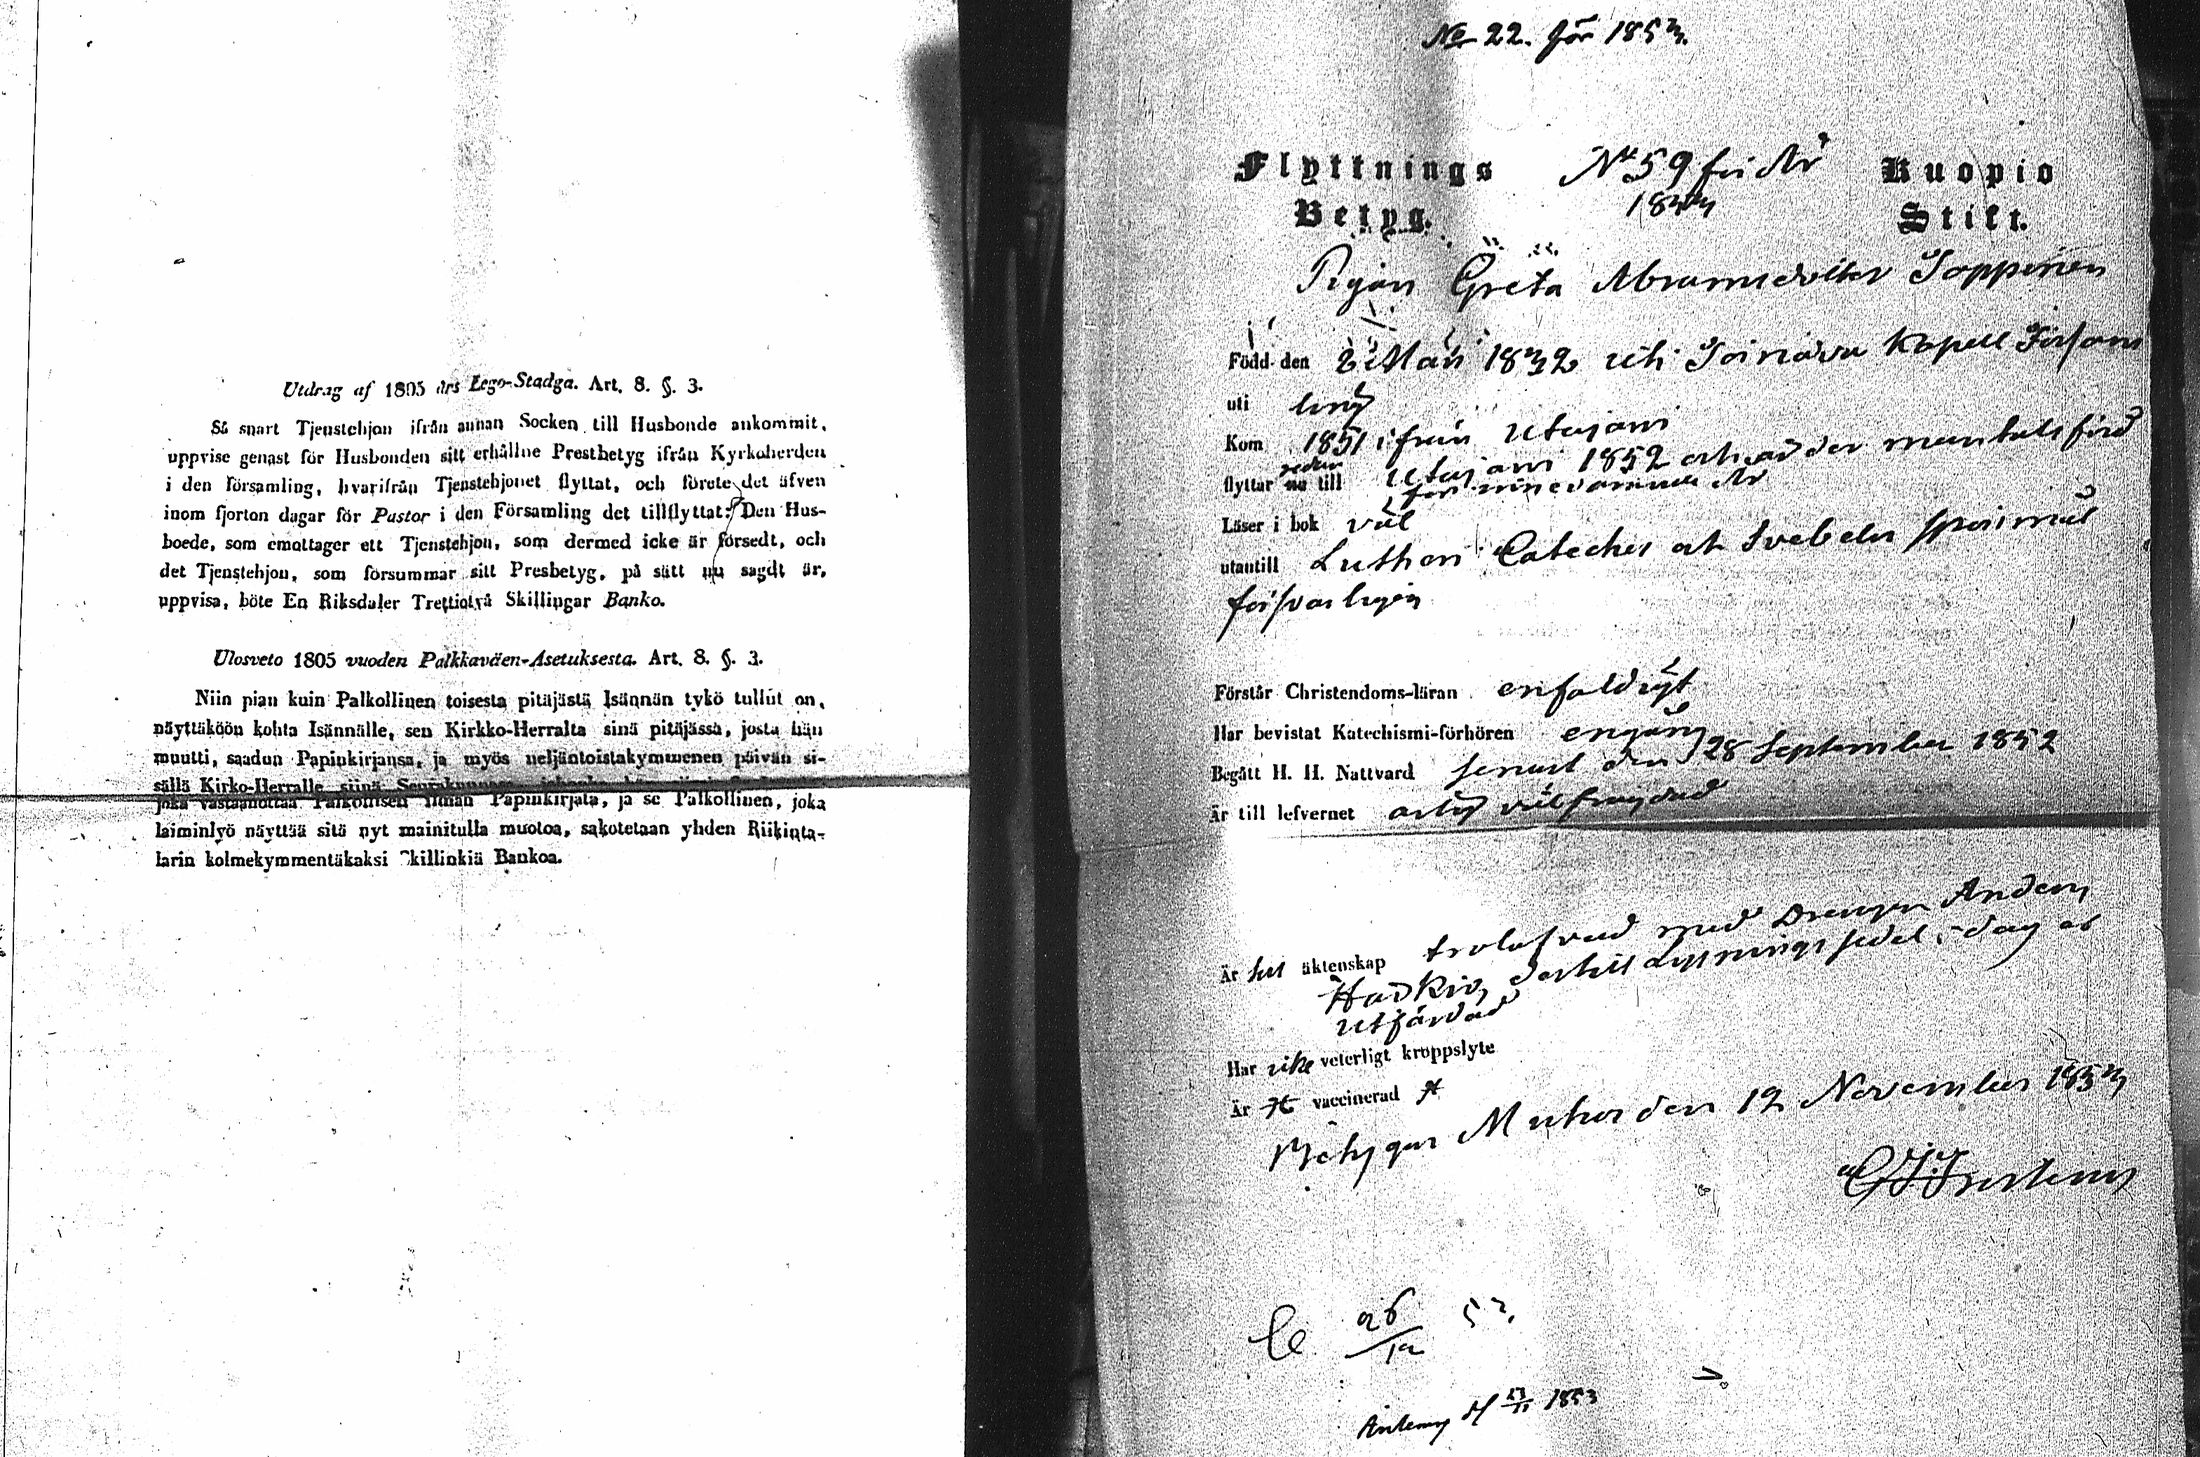 Utdrag af 1805 års Lego-Stadga. Art. 8. §. 3.
Så snart Tjenstehjon ifrån annan Socken till Husbonde ankommit,
uppvise genast för Husbonden sitt erhållne Prestbetyg ifrån Kyrkoherden
i den församling, hvarifrån Tjenstehjonet flyttat, och förete det äfven
inom fjorton dagar för Pastor i den Församling det tillflyttat: Den Hus-
boede, som emottager ett Tjenstehjon, som dermed icke är försedt, och
det Tjenstehjon, som försummar sitt Presbetyg, på sätt nu sagdt är,
uppvisa, böte En Riksdaler Trettiotvå Skillingar Banko.
Ulosveto 1805 vuoden Palkkaväen-Asetuksesta. Art. 8. §. 3.
Niin pian kuin Palkollinen toisesta pitäjästä Isännän tykö tullut on,
näyttäköön kohta Isännälle, sen Kirkko-Herralta sinä pitäjässä, josta hän
muutti, saadun Papinkirjansa, ja myös neljäntoistakymmenen päivän si-
sällä Kirko-Herralle siinä
joka vastaanottaa Palkollisen ilman Papinkirjata, ja se Palkollinen, joka
laiminlyö näyttää sitä nyt mainitulla muotoa, sakotetaan yhden Riikinta-
larin kolmekymmentäkaksi Skillinkiä Bankoa.
No 22. för 1853.
Flyttnings No 59 för År Kuopio
Betyg. 1853 Stift.
Pigan Greta Abramsdotter Toppinen
Född den 2 Mars 1832 uti Soinava Kapell Försam
uti ling
Kom 1851 ifrån Utajärvi
flyttar nu redan till Utajärvi 1852 och är der mantalsförd
för innevarande År
Läser i bok väl
utantill Lutheri Cateches och Svebelii spörsmål
försvarligen
Förstår Christendoms-läran enfaldigt
Har bevistat Katechismi-förhören engång
Begått H. H. Nattvard senast den 28 September 1852
Är till lefvernet ärlig välfrejdad
Är till äktenskap trolofvad med Drengen Anders
dertill Lysningssedel i dag är
utfärdad
Har icke veterligt kroppslyte
Är vaccinerad
Betygar Muhos den 12 November 1853
26/12 53.
1853